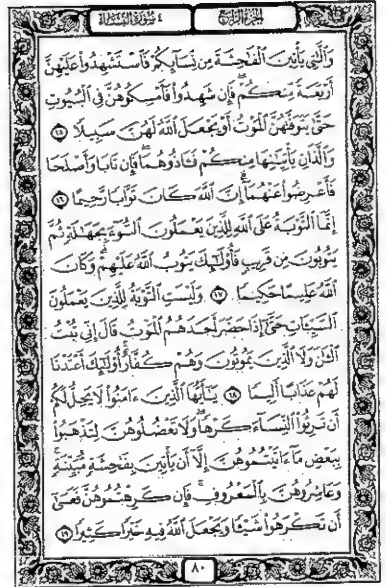 الجزء الرابع
٤ سورة النساء
وَٱلَّٰتِى يَأْتِينَ ٱلْفَٰحِشَةَ مِن نِّسَآئِكُمْ فَٱسْتَشْهِدُوا۟ عَلَيْهِنَّ
أَرْبَعَةً مِّنكُمْ ۖ فَإِن شَهِدُوا۟ فَأَمْسِكُوهُنَّ فِى ٱلْبُيُوتِ
حَتَّىٰ يَتَوَفَّىٰهُنَّ ٱلْمَوْتُ أَوْ يَجْعَلَ ٱللَّهُ لَهُنَّ سَبِيلًا ١٥
وَٱلَّذَانِ يَأْتِيَٰنِهَا مِنكُمْ فَـَٔاذُوهُمَا ۖ فَإِن تَابَا وَأَصْلَحَا
فَأَعْرِضُوا۟ عَنْهُمَآ ۗ إِنَّ ٱللَّهَ كَانَ تَوَّابًا رَّحِيمًا ١٦
إِنَّمَا ٱلتَّوْبَةُ عَلَى ٱللَّهِ لِلَّذِينَ يَعْمَلُونَ ٱلسُّوٓءَ بِجَهَٰلَةٍ ثُمَّ
يَتُوبُونَ مِن قَرِيبٍ فَأُو۟لَٰٓئِكَ يَتُوبُ ٱللَّهُ عَلَيْهِمْ ۗ وَكَانَ
ٱللَّهُ عَلِيمًا حَكِيمًا ١٧ وَلَيْسَتِ ٱلتَّوْبَةُ لِلَّذِينَ يَعْمَلُونَ
ٱلسَّيِّـَٔاتِ حَتَّىٰٓ إِذَا حَضَرَ أَحَدَهُمُ ٱلْمَوْتُ قَالَ إِنِّى تُبْتُ
ٱلْـَٰٔنَ وَلَا ٱلَّذِينَ يَمُوتُونَ وَهُمْ كُفَّارٌ ۚ أُو۟لَٰٓئِكَ أَعْتَدْنَا
لَهُمْ عَذَابًا أَلِيمًا ١٨ يَٰٓأَيُّهَا ٱلَّذِينَ ءَامَنُوا۟ لَا يَحِلُّ لَكُمْ
أَن تَرِثُوا۟ ٱلنِّسَآءَ كَرْهًا ۖ وَلَا تَعْضُلُوهُنَّ لِتَذْهَبُوا۟
بِبَعْضِ مَآ ءَاتَيْتُمُوهُنَّ إِلَّآ أَن يَأْتِينَ بِفَٰحِشَةٍ مُّبَيِّنَةٍ ۚ
وَعَاشِرُوهُنَّ بِٱلْمَعْرُوفِ ۚ فَإِن كَرِهْتُمُوهُنَّ فَعَسَىٰٓ
أَن تَكْرَهُوا۟ شَيْـًٔا وَيَجْعَلَ ٱللَّهُ فِيهِ خَيْرًا كَثِيرًا ١٩
٨٠